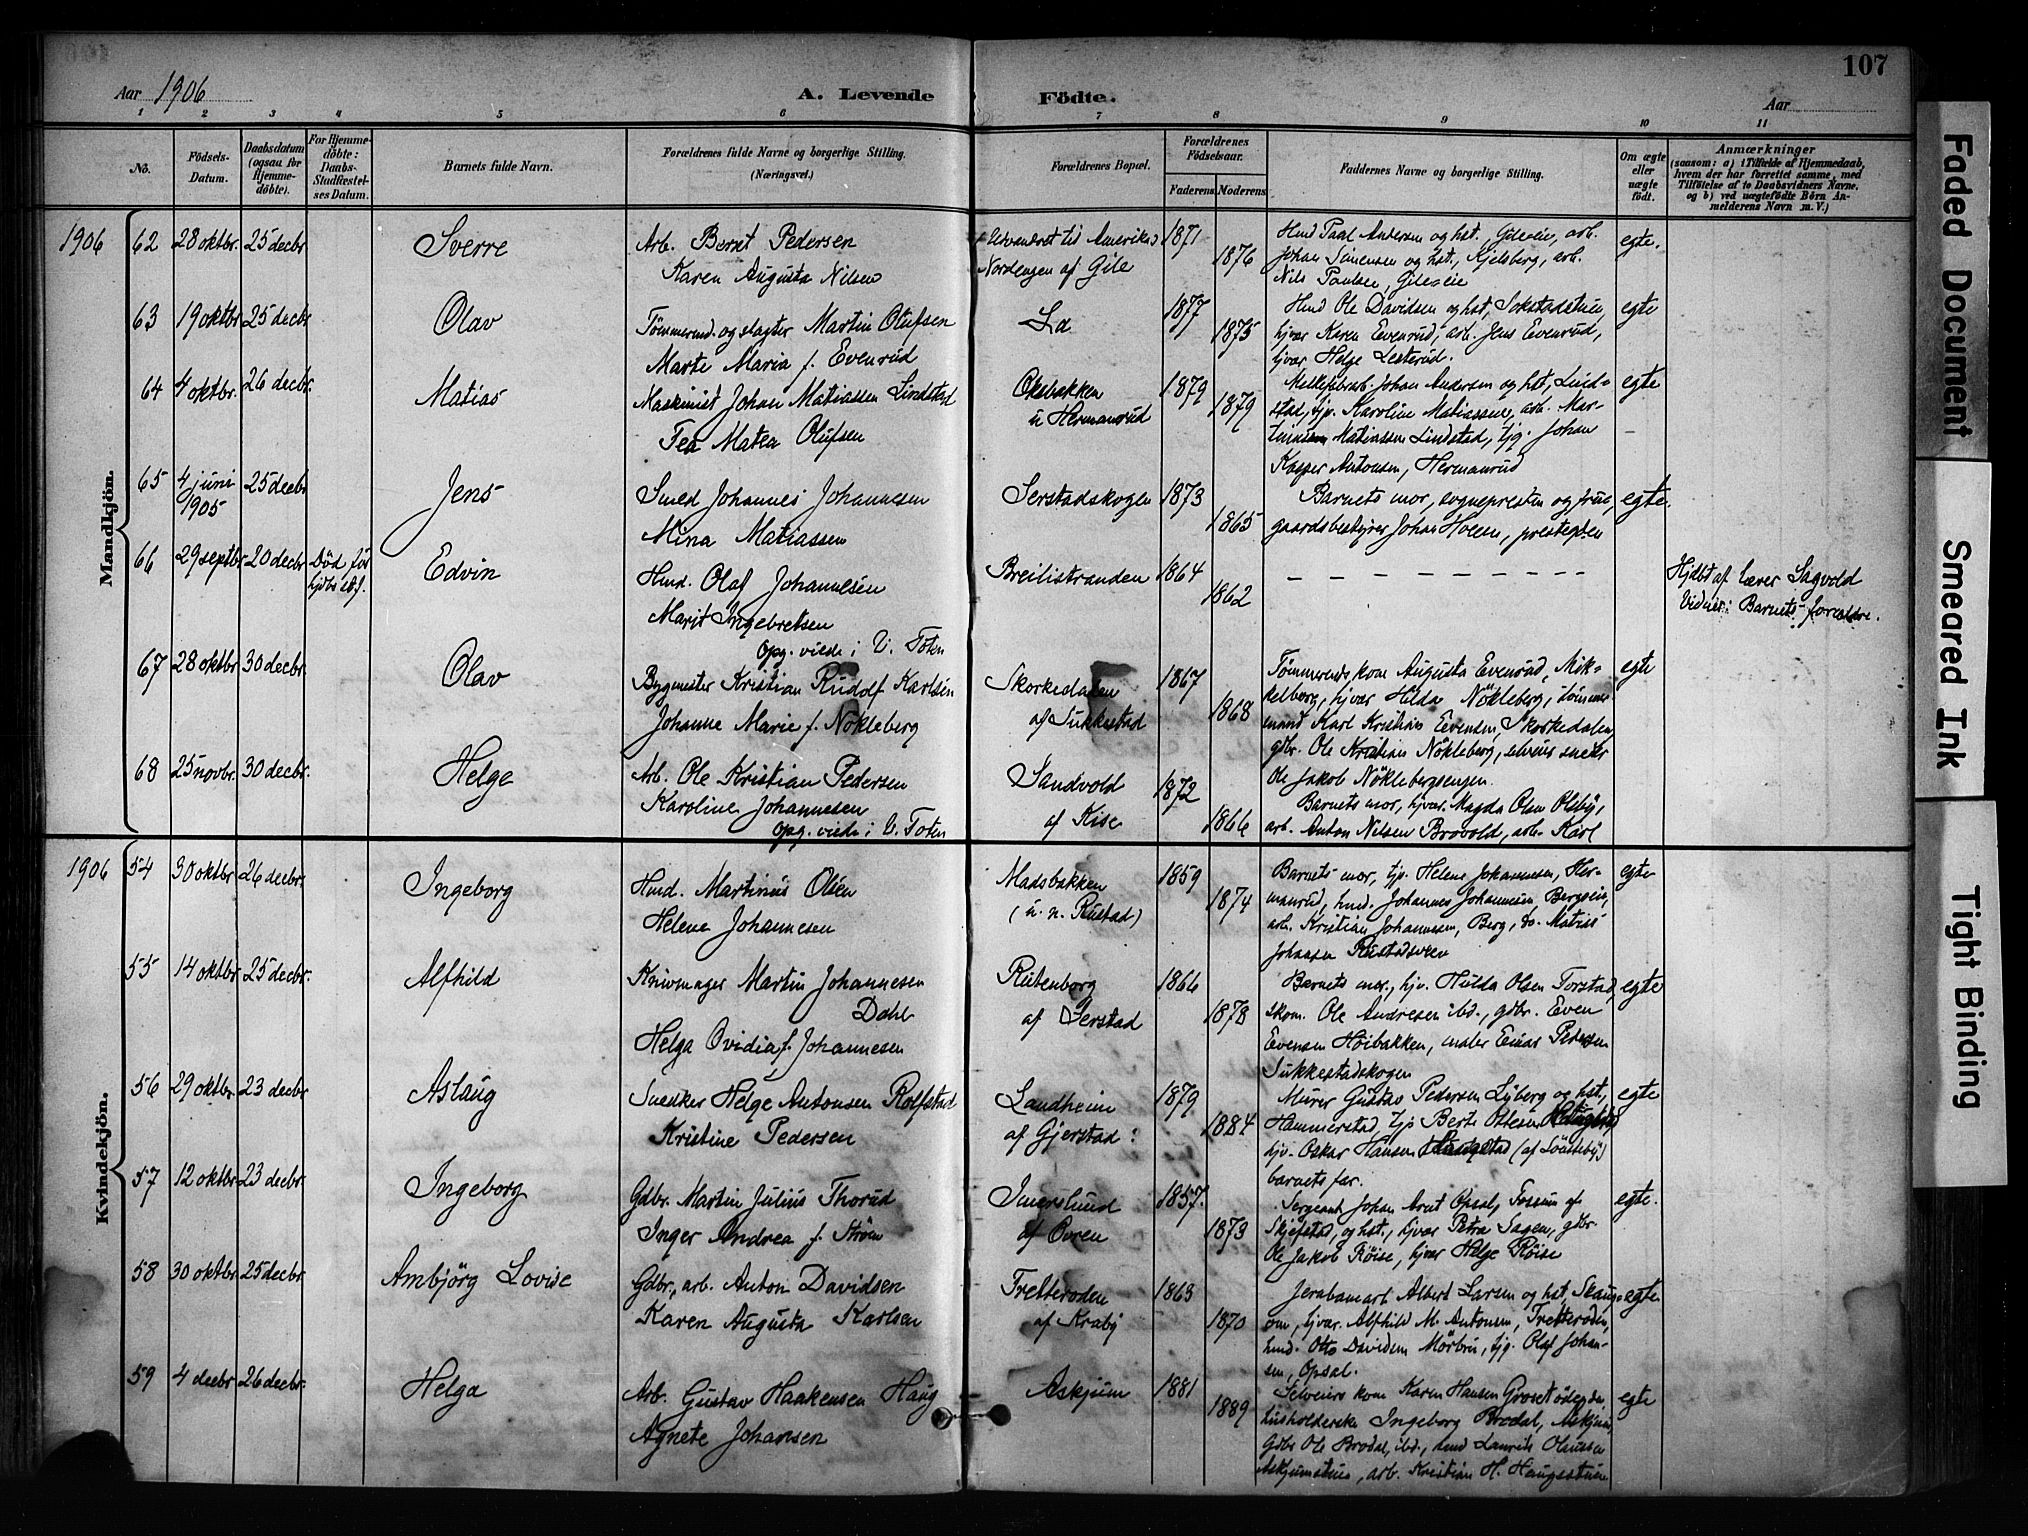 107
Aar 1906
A. Levende Födte.
Aar
1 2 3 4 5 6 7 8 9 10 11
No.
Födsels-Datum.
Daabsdatum (ogsaa for Hjemmedöbte).
For Hjemmedöbte: Daabs-Stadfæstelses Datum.
Barnets fulde Navn.
Forældrenes fulde Navne og borgerlige Stilling. (Næringsvei.)
Forældrenes Bopæl.
Forældrenes Födselsaar.
Faderens. Moderens.
Faddernes Navne og borgerlige Stilling.
Om ægte eller uægte födt.
Anmærkninger
(saasom: a) i Tilfælde af Hjemmedaab, hvem der har forrettet samme, med Tilföielse af to Daabsvidners Navne, og b) ved uægtefödte Börn Anmelderens Navn m. V.)
Mandkjön.
1906 62 28 oktbr. 25 decbr Sverre
Arb. Bernt Pedersen
Karen Augusta Nilsen
Udvandret til Amerika
Nordengen af Gile
1871 1876
Hmd Paal Andersen og hst., Gileeie, arb.
Johan Simensen og hst., Kjelsberg, arb.
Nils Paulsen, Gileeie
egte.
63 19 oktbr 25 decbr Olav
Tømmermd. og slagter Martin Olufsen
Marte Maria f. Evenrud
1877 1875
Hmd Ole Davidsen og hst, Sokstadstuen,
hjvar Karen Evenrud, arb. Jens Evenrud,
hjvar Helge Lesterud.
egte
64 4 oktbr. 26 decbr. Matias
Maskinist Johan Matiassen Lindstad
Tea Matea Olufsen
Oksbakken
u Hermanrud
1879 1879
Johan Andersen og hst, Lindstad,
tjp. Karoline Matiassen, arb. Mar-
Matiassen Lindstad, tjg. Johan
Kasper Antonsen, Hermanrud
egte
65 4 juni 1905 25 decbr Jens
Smed Johannes Johannesen
Mina Matiassen
Serstadskogen
1873 1865
Barnets mor, sognepresten og frue,
gaardsbestyrer Johan Hoven, prestegden
egte.
66 29 septbr. 20 decbr Død før hjdbs stf. Edvin
Hmd. Olaf Johannesen
Marit Ingebretsen
Opg. viede i V. Toten
Breilistranden
1864 1862
Hjdbt af lærer Sagvold
Vidner: Barnets forældre.
67 28 oktbr 30 decbr. Olav
Bygmester Kristian Rudolf Karlsen
Johanne Marie f. Nökleberg
Skorkedalen
af Sukkestad
1867 1868
Tømmermds kone Augusta Evenrud, Mik-
kelborg, hjvar Hilda Nökleberg, tømmer-
mand Karl Kristian Evensen, Skorkedalen,
gdbr. Ole Kristian Nökleberg, selveiersnedker
Ole Jakob Nöklebergsengen.
egte
68 25 novbr. 30 decbr. Helge
Arb. Ole Kristian Pedersen
Karoline Johannesen
Opg. viede i V. Toten
Sandvold
af Kise
1872 1866
Barnets mor, hjvar. Magda Olsen Olsby,
arb. Anton Nilsen Brovold, arb. Karl
Kvindekjön.
1906 54 30 oktbr 26 decbr. Ingeborg
Hmd. Martinus Olsen
Helene Johannesen
Madsbakken
(u. n. Rustad)
1859 1874
Barnets mor, tjp. Helene Johannesen, Her-
manrud, hmd. Johannes Johannesen Bergseie,
arb. Kristian Johannesen, Berg, do. Matias
Johansen Rustadsveen
egte
55 14 oktbr. 25 decbr. Alfhild
Knivmager Martin Johannesen
Dahl
Helga Ovidia f. Johannesen
Rutenborg
af Gerstad
1866 1878
Barnets mor., hjv. Hulda Olsen Torstad,
skom. Ole Andresen ibd., gdbr. Even
Evensen Høibakken, maler Einar Pedersen
Sukkestadskogen
egte
56 29 oktbr. 23 decbr Aslaug
Snekker Helge Antonsen Rolfstad
Kristine Pedersen
Landheim
af Gjerstad:
1879 1884
Murer Gustav Pedersen Lyberg og hst,
Hammerstad, tjp Berte Ottesen
hjv. Oskar Hansen Haugstad
barnets far.
egte
57 12 oktbr 23 decbr. Ingeborg
Gdbr. Martin Julius Thorud
Inger Andrea f. Strøm
Imerslund
af Ovren
1857. 1873
Sergeant Johan Arnt Opsal, Fossum af
Skjefstad, og hst., hjvar Petra Sagen, gdbr.
Ole Jakob Røise, hjvar Helge Røise
egte.
58 30 oktbr. 25 decbr. Ambjörg Lovise
Gdbr., arb. Anton Davidsen
Karen Augusta Karlsen
Tretteroden
af Kraby
1863 1870
Jernbanearb Albert Larsen og hst, Skaug-
om, hjvar. Alfhild M. Antonsen, Tretteroden,
hmd. Otto Davidsen Mörbru, tjg. Olaf Johan-
sen, Opsal.
egte
59 4 decbr 26 decbr. Helga
Arb. Gustav Haakensen Haug
Agnete Johansen
Askjum
1881 1889
Selveiers kone Karen Hansen Grosetödegden,
husholderske Ingeborg Brodal, Askjum,
Gdbr Ole Brodal, ibd., hmd Laurits Olaussen
Askjumstuen, arb. Kristian H. Haugsstuen
egte
Faded Document
Smeared Ink
Tight Binding